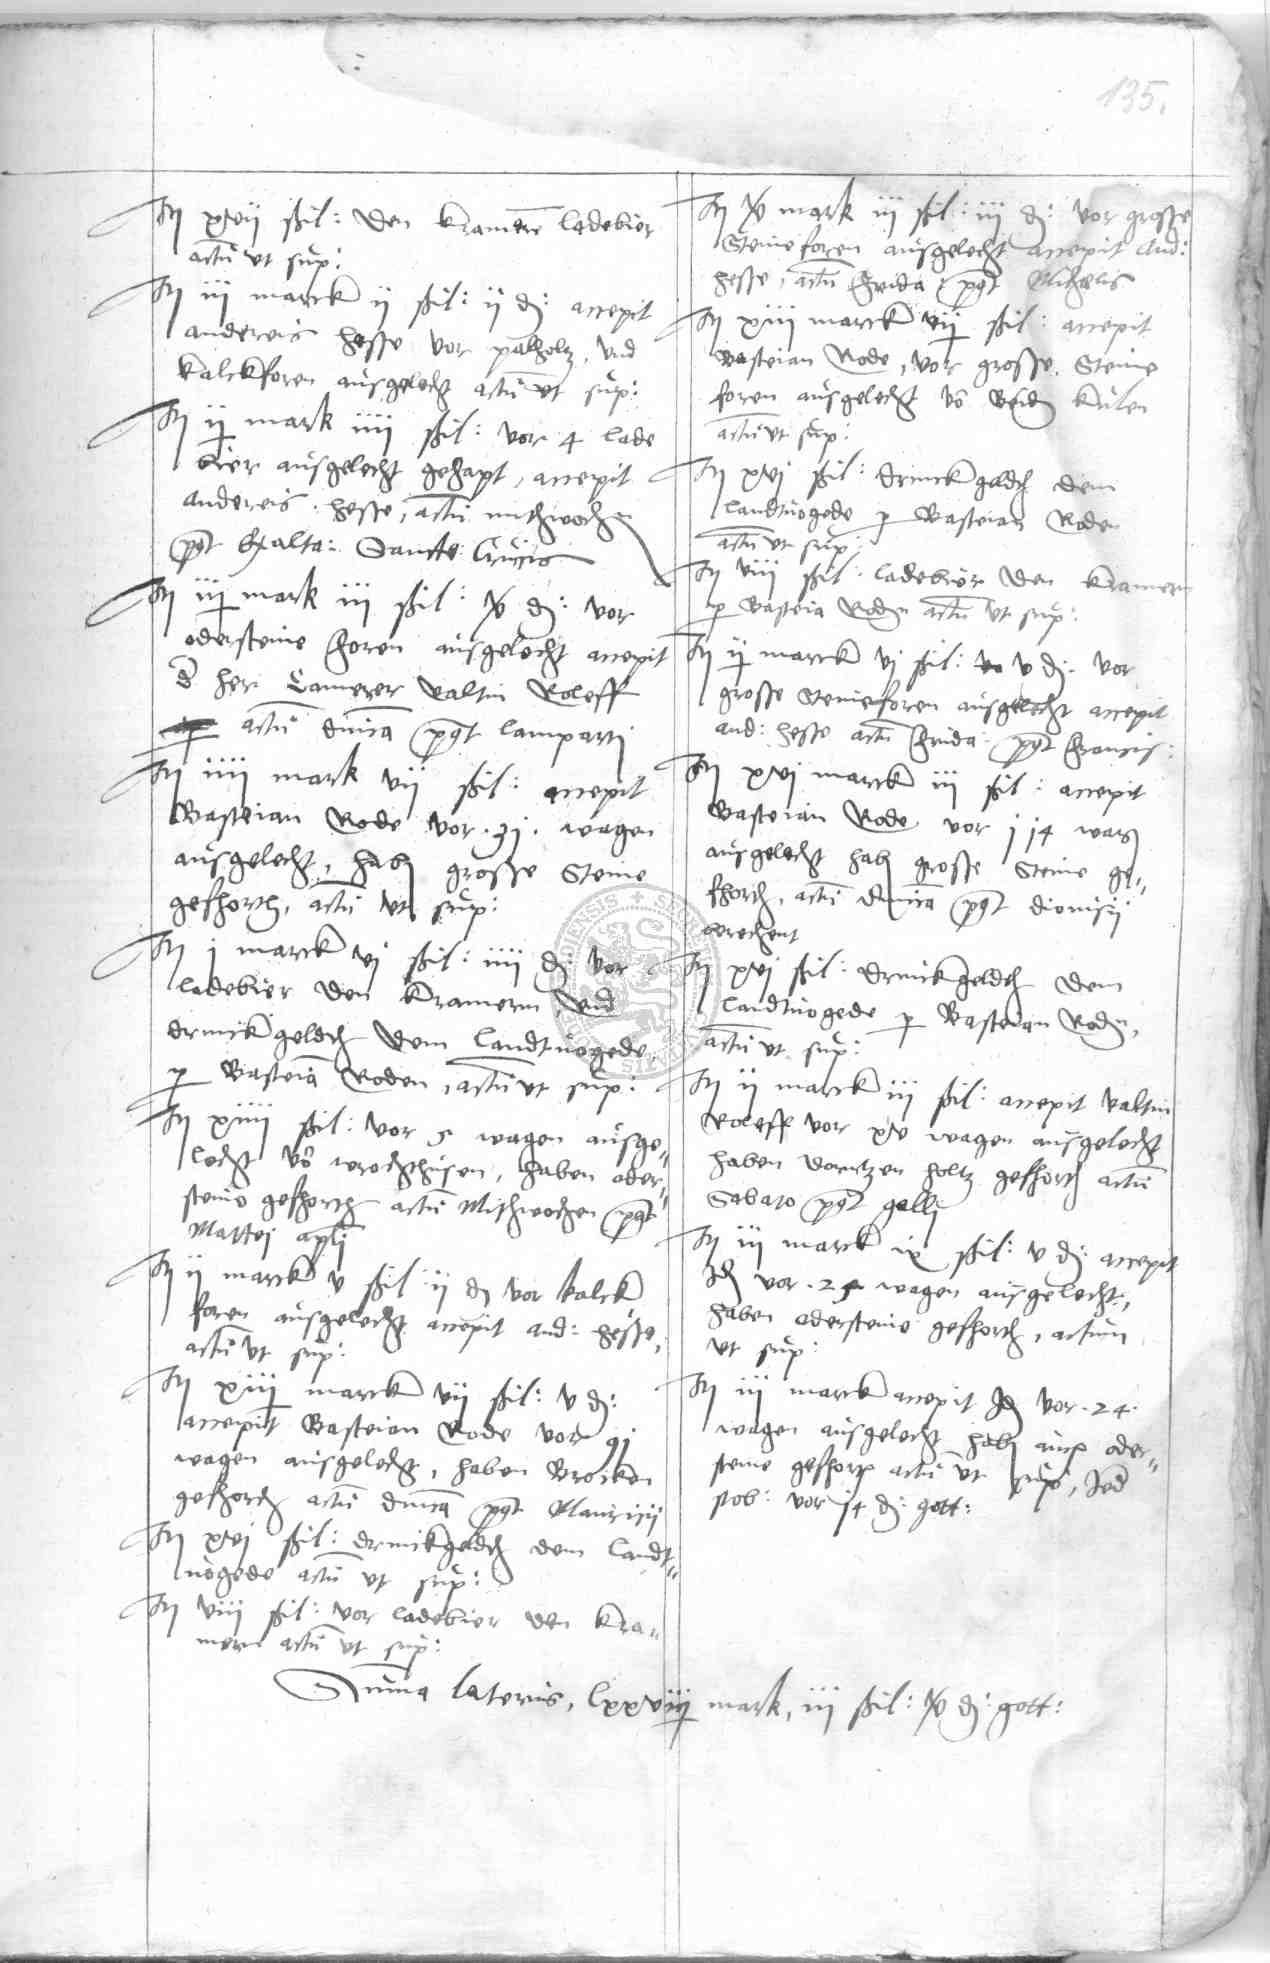 135.
It xvii ßil: den kramern ladebier
actu ut sup:
It iii marck ii ßil: ii d: accepit
andereis hesse vor palholtz, und
kalckforen ausgelecht actu ut sup:
It ii mark iiii ßil: vor 4 lade
bier ausgelecht gehapt, accepit
andereis hesse, actu mithwochen
post Exalta: Sancte Crucis
It iii mark iii ßil: xv d: vor
odersteine foren ausgelecht accepit
d her Camerer Valtin Roleff
actu dnica post lamparti
It iiii mark vii ßil: accepit
Basteian Rode vor 31 wagen
ausgelecht, habn grosse Steine
gefhorth, actu ut sup:
It i marck vi ßil: iiii d: vor
ladebier den kramern und
drinckgeldth dem landtuogede
p Basteia Roden, actu ut sup:
It xiiii ßil: vor 5 wagen ausge-
lecht vo haben oder-
steine gefhorth actu Mithwochen post
Mattei apli
It ii marck v ßil: ii d vor kalck
foren ausgelecht accepit and: hesse,
actu ut sup:
It xiii marck vii ßil: v d:
accepit Basteian Rode vor 91
wagen ausgelecht, haben Brocken
gefhorth actu dnica post Mauricii
It xvi ßil: drinckgeldth dem landt-
uogede actu ut sup:
It viii ßil: vor ladebier den kra-
mern actu ut sup:
It xv mark iii ßil: iii d: vor grosse
Steine foren ausgelecht accepit And:
hesse, actu frida post Michaelis
It xiii marck vii ßil: accepit
Basteian Rode, vor grosse Steine
foren ausgelecht vo kulen
actu ut sup:
It xvi ßil: drinckgeldth dem
landtuogede p Basteian Roden
actu ut sup:
It viii ßil: ladebier den kramern
p Basteia Roden actu ut sup:
It ii marck vi ßil: v d: vor
grosse Steine foren ausgelecht accepit
and: hesse actu frida post francis:
It xvi marck iii ßil: accepit
Basteian Rode vor 114 wagn
ausgelecht habn grosse Steine ge-
fhorth, actu dnica post dionisii
It xvi ßil: drinckgeldth dem
landtuogede p Basteian Rodn,
actu ut sup:
It ii marck iii ßil: accepit Valtin
Roleff vor xv wagen ausgelecht
haben holtz gefhorth actu
Sabato post galli
It iii marck ix ßil: v d: accepit
Id vor 25 wagen ausgelecht,
haben odersteine gefhorth, actum
ut sup:
It iii marck accepit Id vor 24
wagen ausgelecht habn oder-
steine gefhort actu ut sup,
vor 14 d: gott:
Suma lateris, lxxviii mark, iii ßil: xv d: gott: